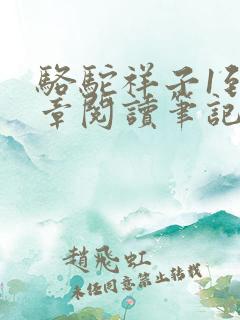 駱駝祥子1至
章閱讀筆記
趙飛虹
未經同意禁止轉載